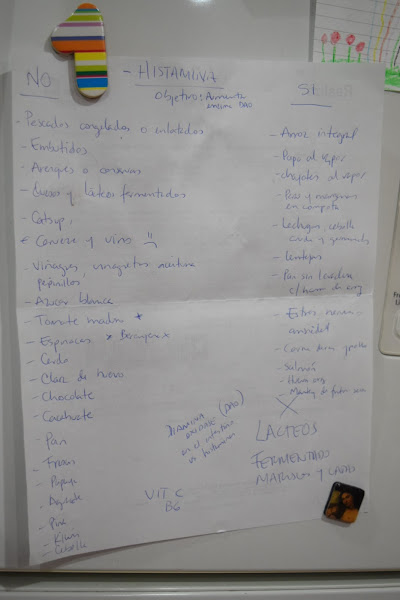 NO
- HISTAMINA
Objetivo: Aumentar
enzima DAO
SI
- Pescados congelados o enlatados
- Embutidos
- Arenques o conservas
- Quesos y lácteos fermentados
- Catsup
Cerveza y vino
- Vinagres, vinagretas aceituna
pepinillos
- Azúcar blanca
- Tomate maduro *
- Espinacas * Berenjena x
- Cerdo
- Clara de huevo
- Chocolate
- Cacahuate
- Pan
- Fresas
- Papaya
- Aguacate
- Piña
- Kiwi
- Cebolla
- Arroz integral
- Papa al vapor
- chayotes al vapor
- Pera y manzana
en compota
- Lechuga, cebolla
cruda y germinados
- Lentejas
- Pan sin levadura
c/harina de
ansiedad
- Carne
- Salmón
LÁCTEOS
FERMENTADO
MARISCOS Y LATAS
DIAMINA
OXIDASA (DAO)
en el intestino
VIT C
B6